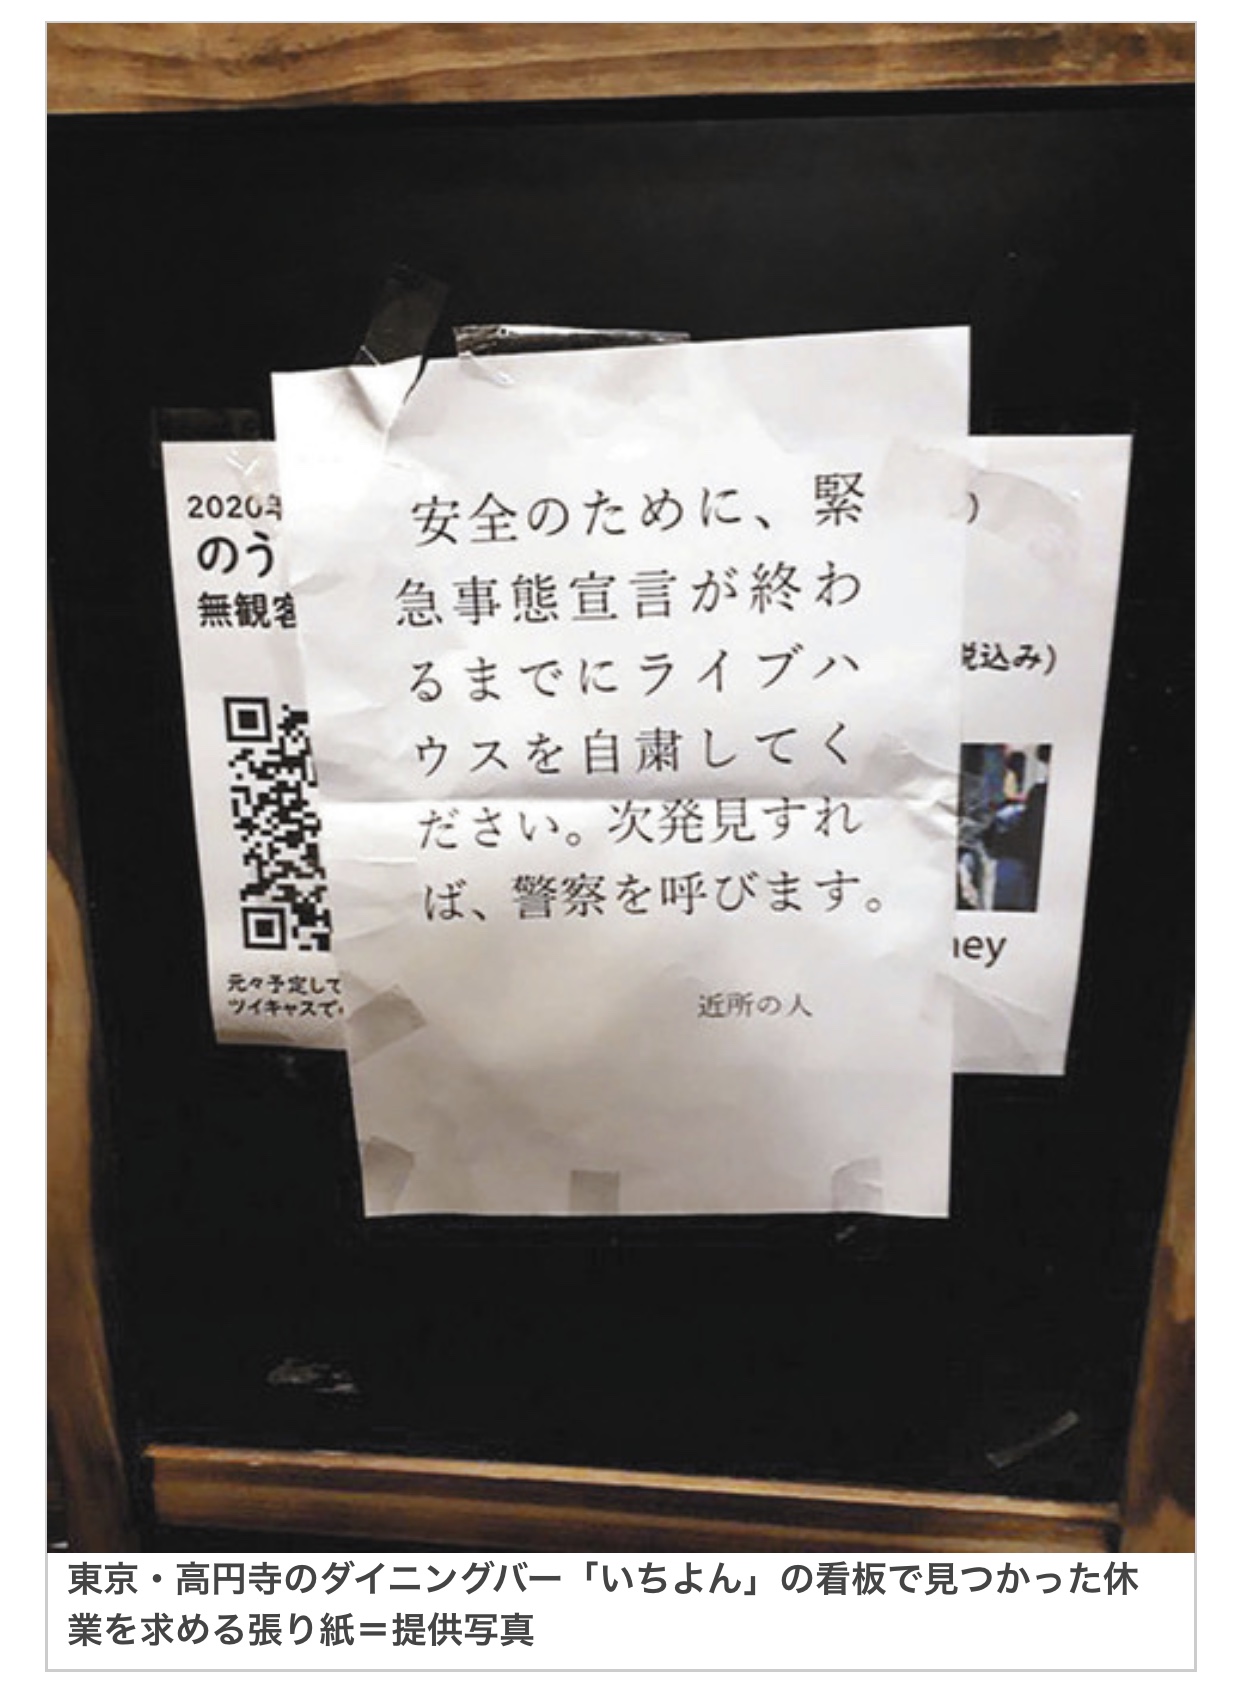 2020年
のう
無観客
元々予定して
ツイキャスで
安全のために、緊
急事態宣言が終わ
るまでにライブハ
ウスを自粛してく
ださい。次発見すれ
ば、警察を呼びます。
近所の人
)
税込み)
ney
東京・高円寺のダイニングバー「いちよん」の看板で見つかった休
業を求める張り紙＝提供写真